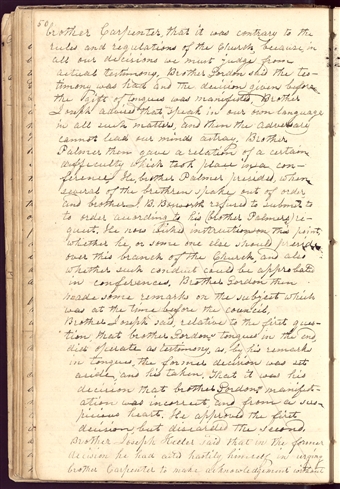 50
brother Carpenter, that it was contrary to the
rules and regulations of the Church, because in
all our decisions we must judge from
actual testimony, Brother Gordon said the tes-
timony was had and the decision given before
the gift of tongues was manifested, Brother
Joseph advised that speak in our own language
in all such matters, and then the adversary
cannot lead our minds astray. Brother
Palmer then gave a relation of a certain
difficulty which took place in a con-
ference. He, brother Palmer presided, when
several of the brethren spoke out of order
and brother J. B. Bosworth refused to submit to
to order according to his (brother Palmer's) re-
quest, He now asked instruction on this point,
whether he or some one else should preside
over this branch of the Church, and also
whether such conduct could be approbated
in conferences, Brother Gordon then
made some remarks on the subject which
was at the time before the council,
Brother Joseph said, relative to the first ques-
tion, that brother Gordon's tongues in the end,
did operate as testimony, as, by his remarks
in tongues, the former decision was set
aside and his taken, That it was his
decision that brother Gordon's manifest-
ation was incorrect, and from a sus-
picious heart. He approved the first
decision, but discarded the second.
Brother Joseph Keeler said that in the former
decision he had acted hastily, himself, in urging
brother Carpenter to make acknowledgement without